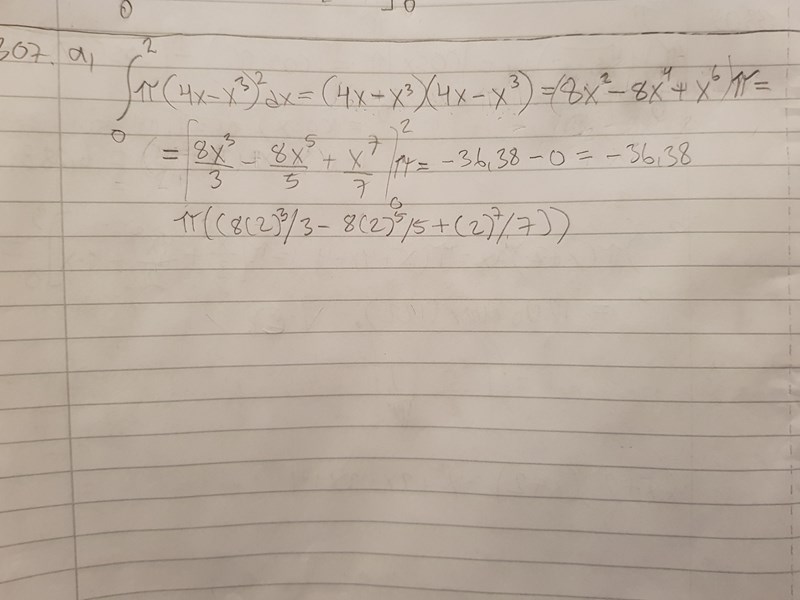 0 0
307. a, ∫₀² π(4x-x³)²dx = (4x+x³)(4x-x³) = (8x²-8x⁴+x⁶)π =
= [8x³/3 - 8x⁵/5 + x⁷/7]₀² π = -36,38 - 0 = -36,38
π((8(2)³/3 - 8(2)⁵/5 + (2)⁷/7))